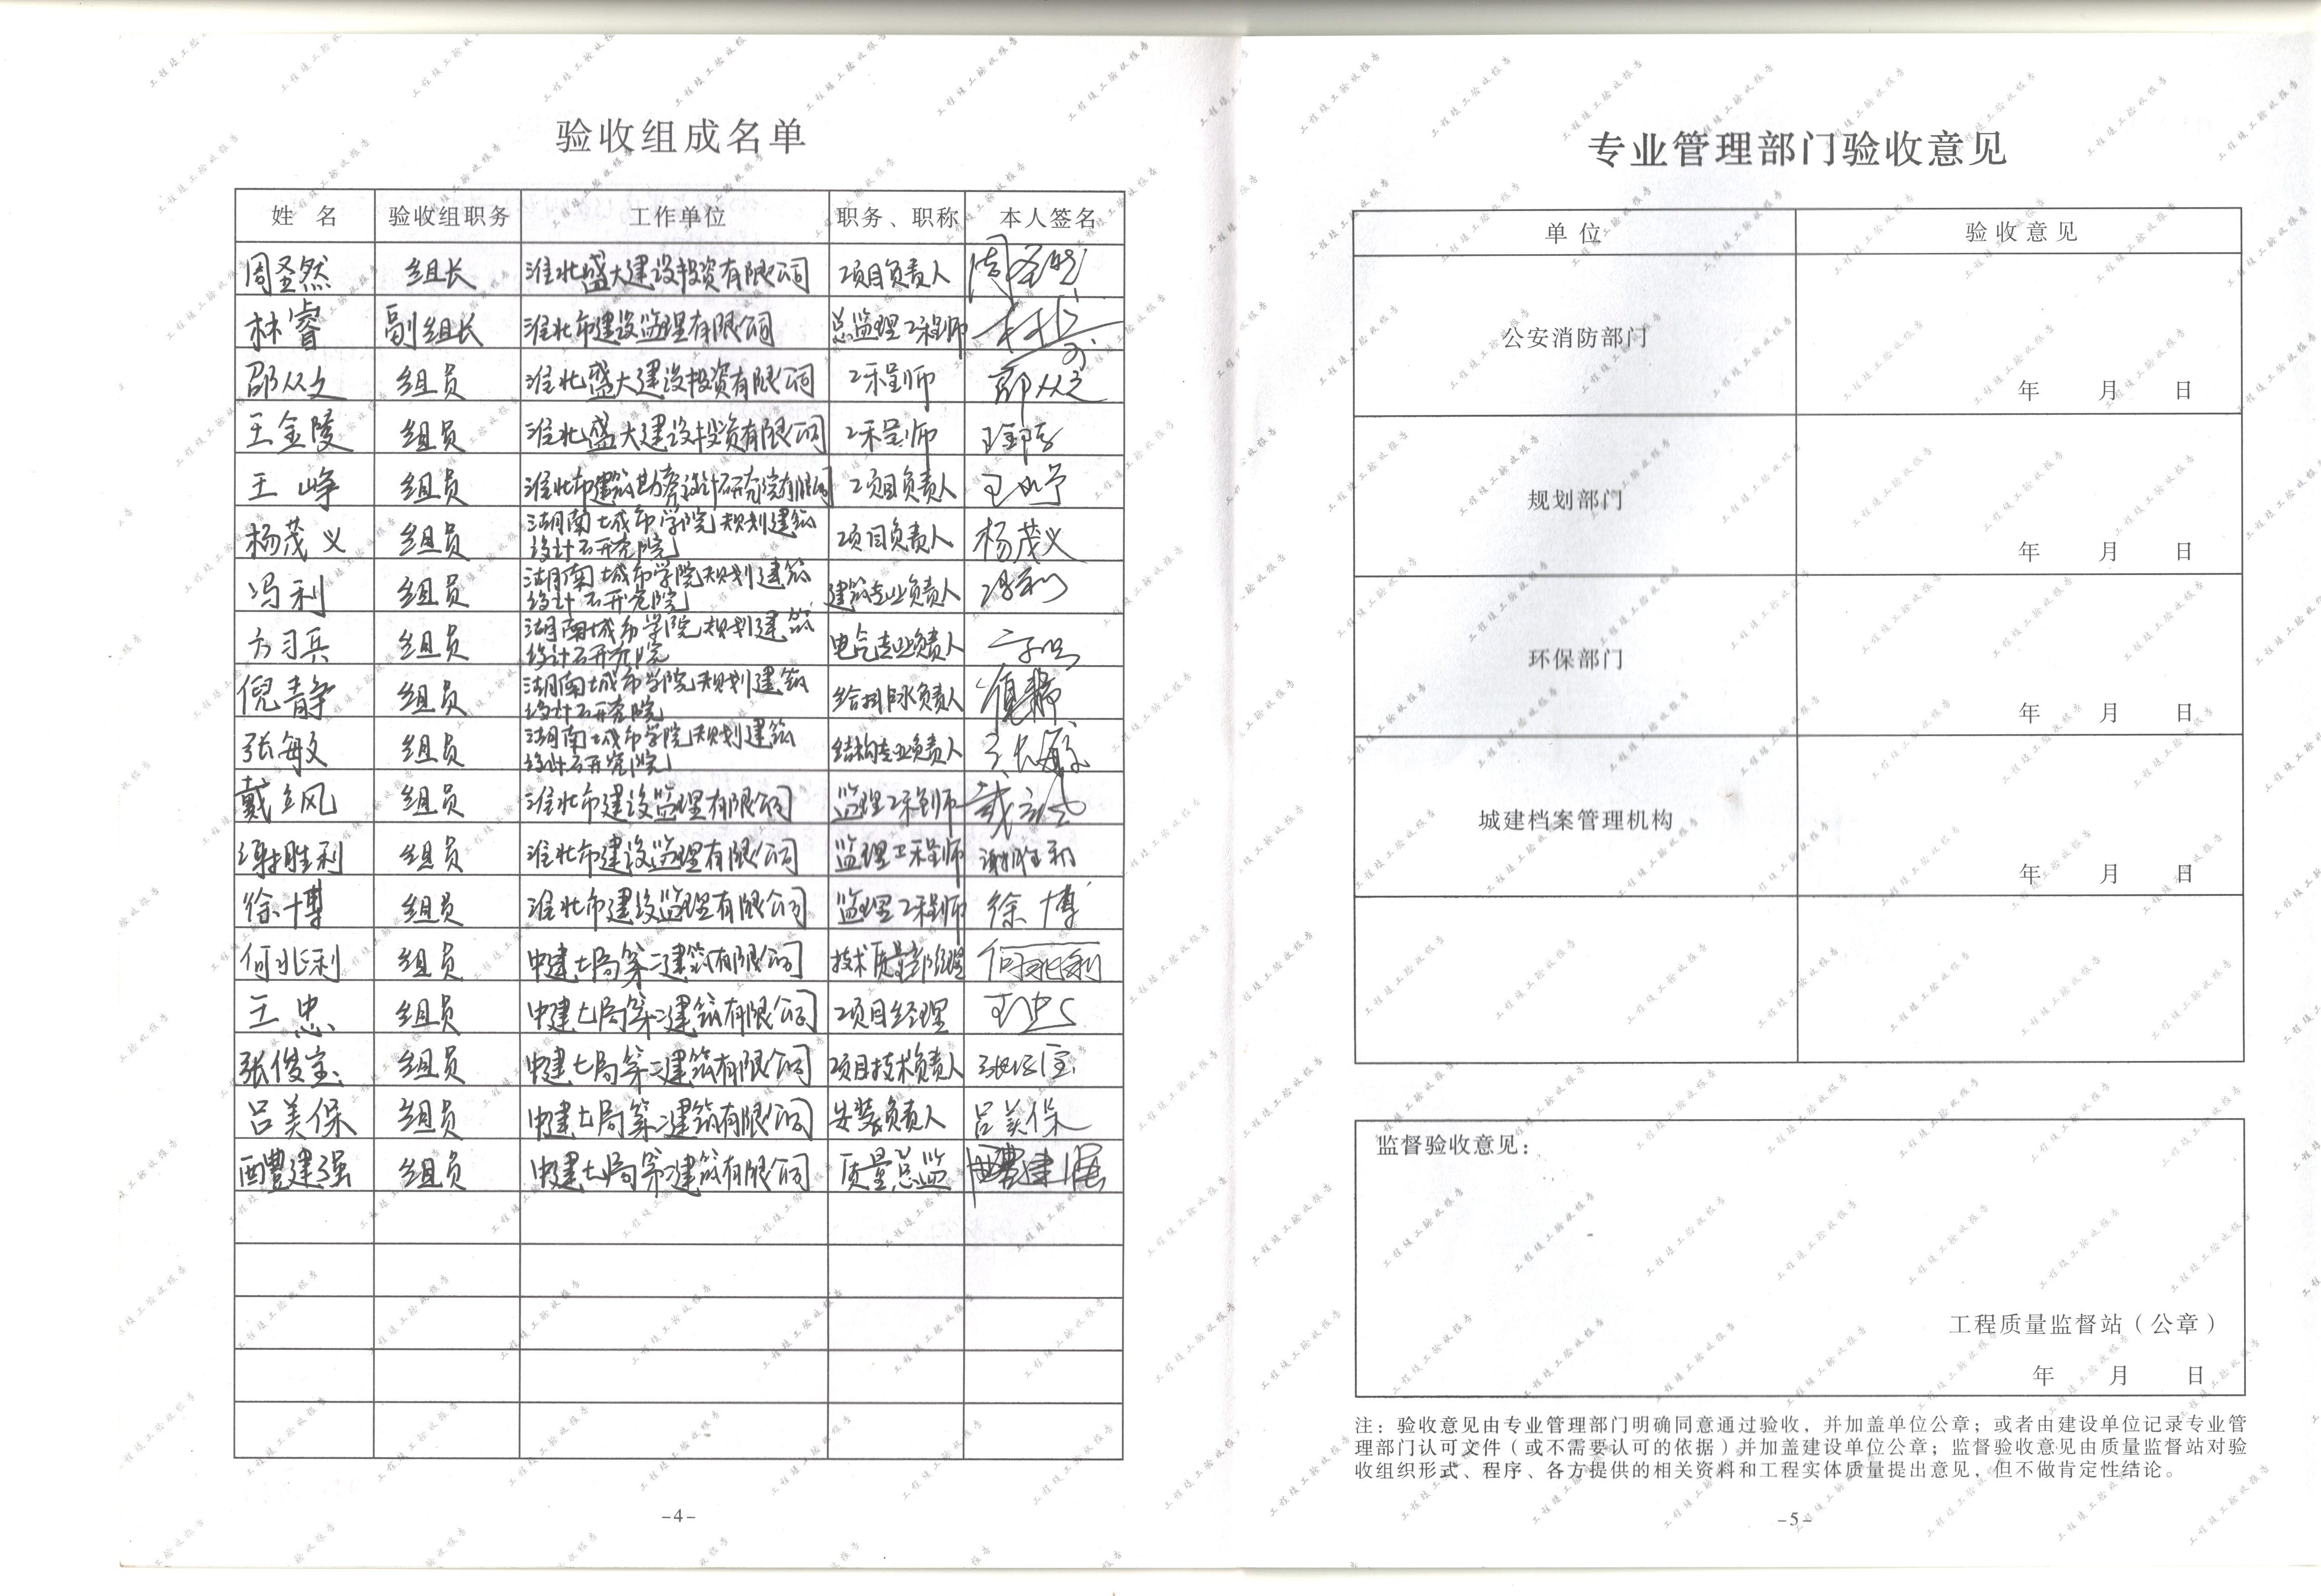 验收组成名单
姓 名 验收组职务 工作单位 职务、职称 本人签名
周圣然 组长 淮北盛大建设投资有限公司 项目负责人 周圣然
林睿 副组长 淮北市建设监理有限公司 总监理工程师
邵从之 组员 淮北盛大建设投资有限公司 工程师 邵从之
王金陵 组员 淮北盛大建设投资有限公司 工程师 王金陵
王峥 组员 淮北市建筑勘察设计研究院有限公司 项目负责人 王峥
杨茂义 组员 湖南城市学院规划建筑 项目负责人 杨茂义
设计研究院
冯利 组员 湖南城市学院规划建筑 建筑专业负责人 冯利
设计研究院
方习兵 组员 湖南城市学院规划建筑 电气专业负责人
设计研究院
倪静 组员 湖南城市学院规划建筑 给排水负责人 倪静
设计研究院
张敏 组员 湖南城市学院规划建筑 结构专业负责人 张敏
设计研究院
戴立风 组员 淮北市建设监理有限公司 监理工程师 戴立风
谢胜利 组员 淮北市建设监理有限公司 监理工程师 谢胜利
徐博 组员 淮北市建设监理有限公司 监理工程师 徐博
何兆利 组员 中建七局第二建筑有限公司 技术质量部经理 何兆利
王忠 组员 中建七局第二建筑有限公司 项目经理 王忠
张俊宝 组员 中建七局第二建筑有限公司 项目技术负责人 张俊宝
吕美保 组员 中建七局第二建筑有限公司 安装负责人 吕美保
酆建强 组员 中建七局第二建筑有限公司 质量总监
-4-
专业管理部门验收意见
单 位 验 收 意 见
公安消防部门
年 月 日
规划部门
年 月 日
环保部门
年 月 日
城建档案管理机构
年 月 日
监督验收意见:
工程质量监督站（公章）
年 月 日
注：验收意见由专业管理部门明确同意通过验收，并加盖单位公章；或者由建设单位记录专业管
理部门认可文件（或不需要认可的依据）并加盖建设单位公章；监督验收意见由质量监督站对验
收组织形式、程序、各方提供的相关资料和工程实体质量提出意见，但不做肯定性结论。
-5-
工程竣工验收报告